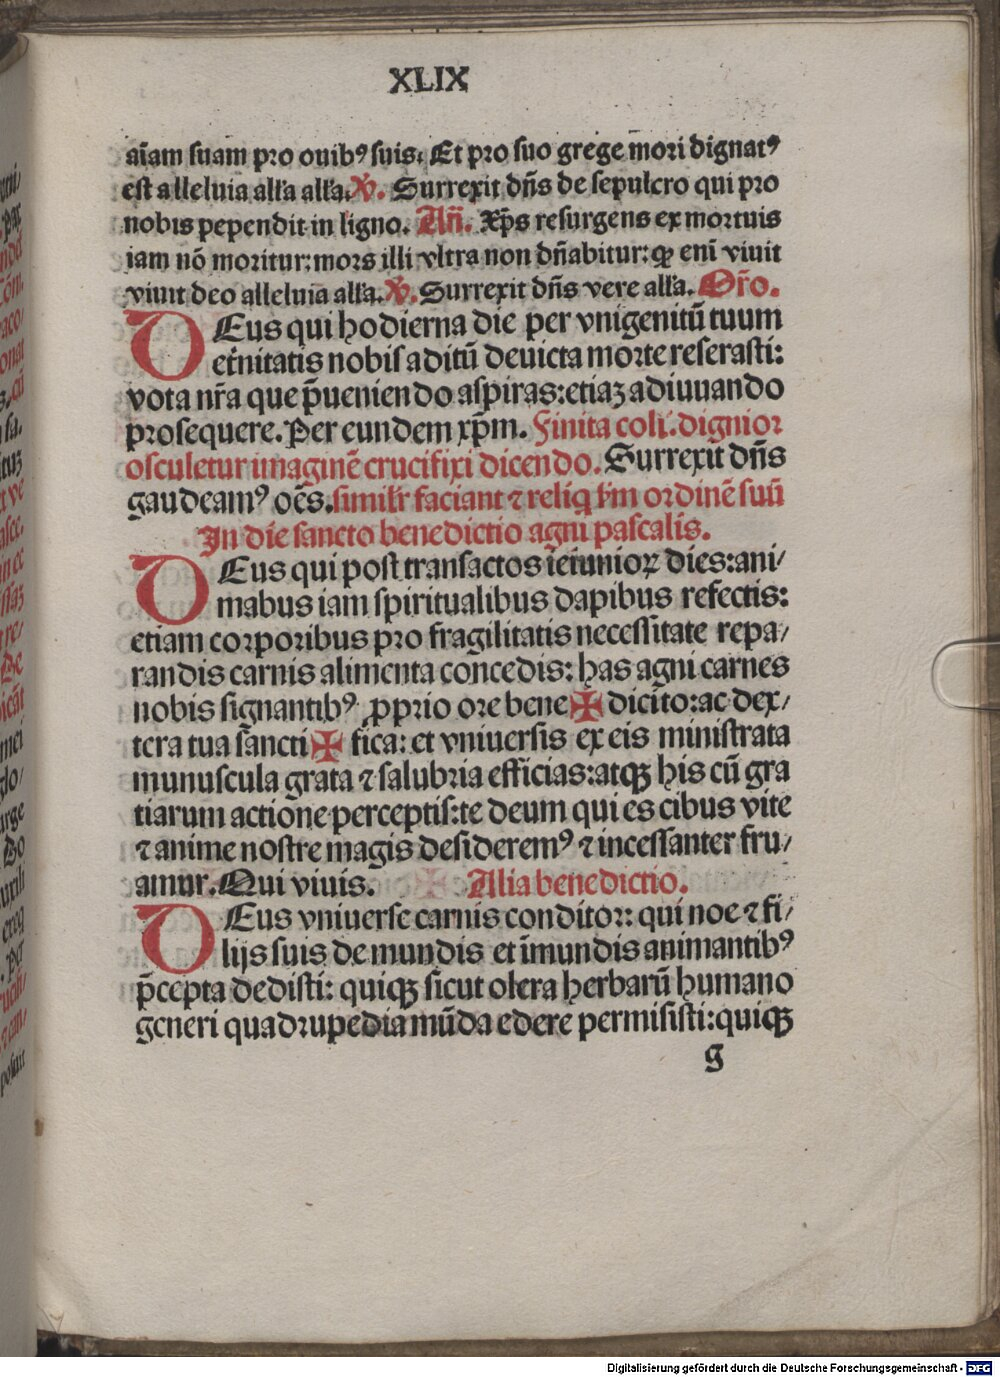 XLIX
aīam suam pro ouibꝰ suis. Et pro suo grege mori dignatꝰ
est alleluia alla alla. ℣. Surrexit dn̄s de sepulcro qui pro
nobis pependit in ligno. An̄. Xp̄s resurgens ex mortuis
iam nō moritur: mors illi vltra non dn̄abitur: ꝙ enī viuit
viuit deo alleluia alla. ℣. Surrexit dn̄s vere alla. Or̄o.
DEus qui hodierna die per vnigenitū tuum
et̄nitatis nobis aditū deuicta morte reserasti:
vota nr̄a que p̄ueniendo aspiras: etiaꝫ adiuuando
prosequere. Per eundem xp̄m. Finita coll. dignior
osculetur imaginē crucifixi dicendo. Surrexit dn̄s
gaudeamꝰ oēs. similr faciant ⁊ reliq̄ ẜm ordinē suū
In die sancto benedictio agni pascalis.
DEus qui post transactos ieiunioꝝ dies: ani/
mabus iam spiritualibus dapibus refectis:
etiam corporibus pro fragilitatis necessitate repa/
randis carnis alimenta concedis: has agni carnes
nobis signantibꝰ ꝓprio ore bene ✠ dicito: ac dex/
tera tua sancti ✠ fica: et vniuersis ex eis ministrata
munuscula grata ⁊ salubria efficias: atqꝫ his cū gra
tiarum actione perceptis: te deum qui es cibus vite
⁊ anime nostre magis desideremꝰ ⁊ incessanter fru/
amur. Qui viuis. Alia benedictio.
DEus vniuerse carnis conditor: qui noe ⁊ fi/
lijs suis de mundis et īmundis animantibꝰ
p̄cepta dedisti: quiqꝫ sicut olera herbarū humano
generi quadrupedia mūda edere permisisti: quiqꝫ
g
Digitalisierung gefördert durch die Deutsche Forschungsgemeinschaft - DFG